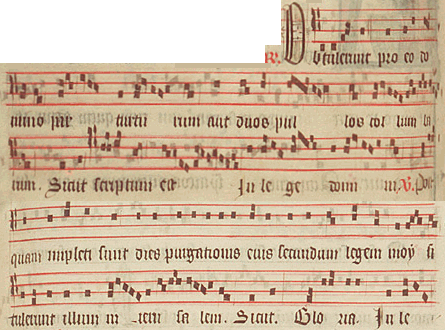 R. Obtulerunt pro eo do
mino par turtu rum aut duos pul los co lum ba
rum. Sicut scriptum est In le ge domi ni. V. Post
quam impleti sunt dies purgationis eius secundum legem moysi
tulerunt illum in ieru sa lem. Sicut. Glo ria. In le